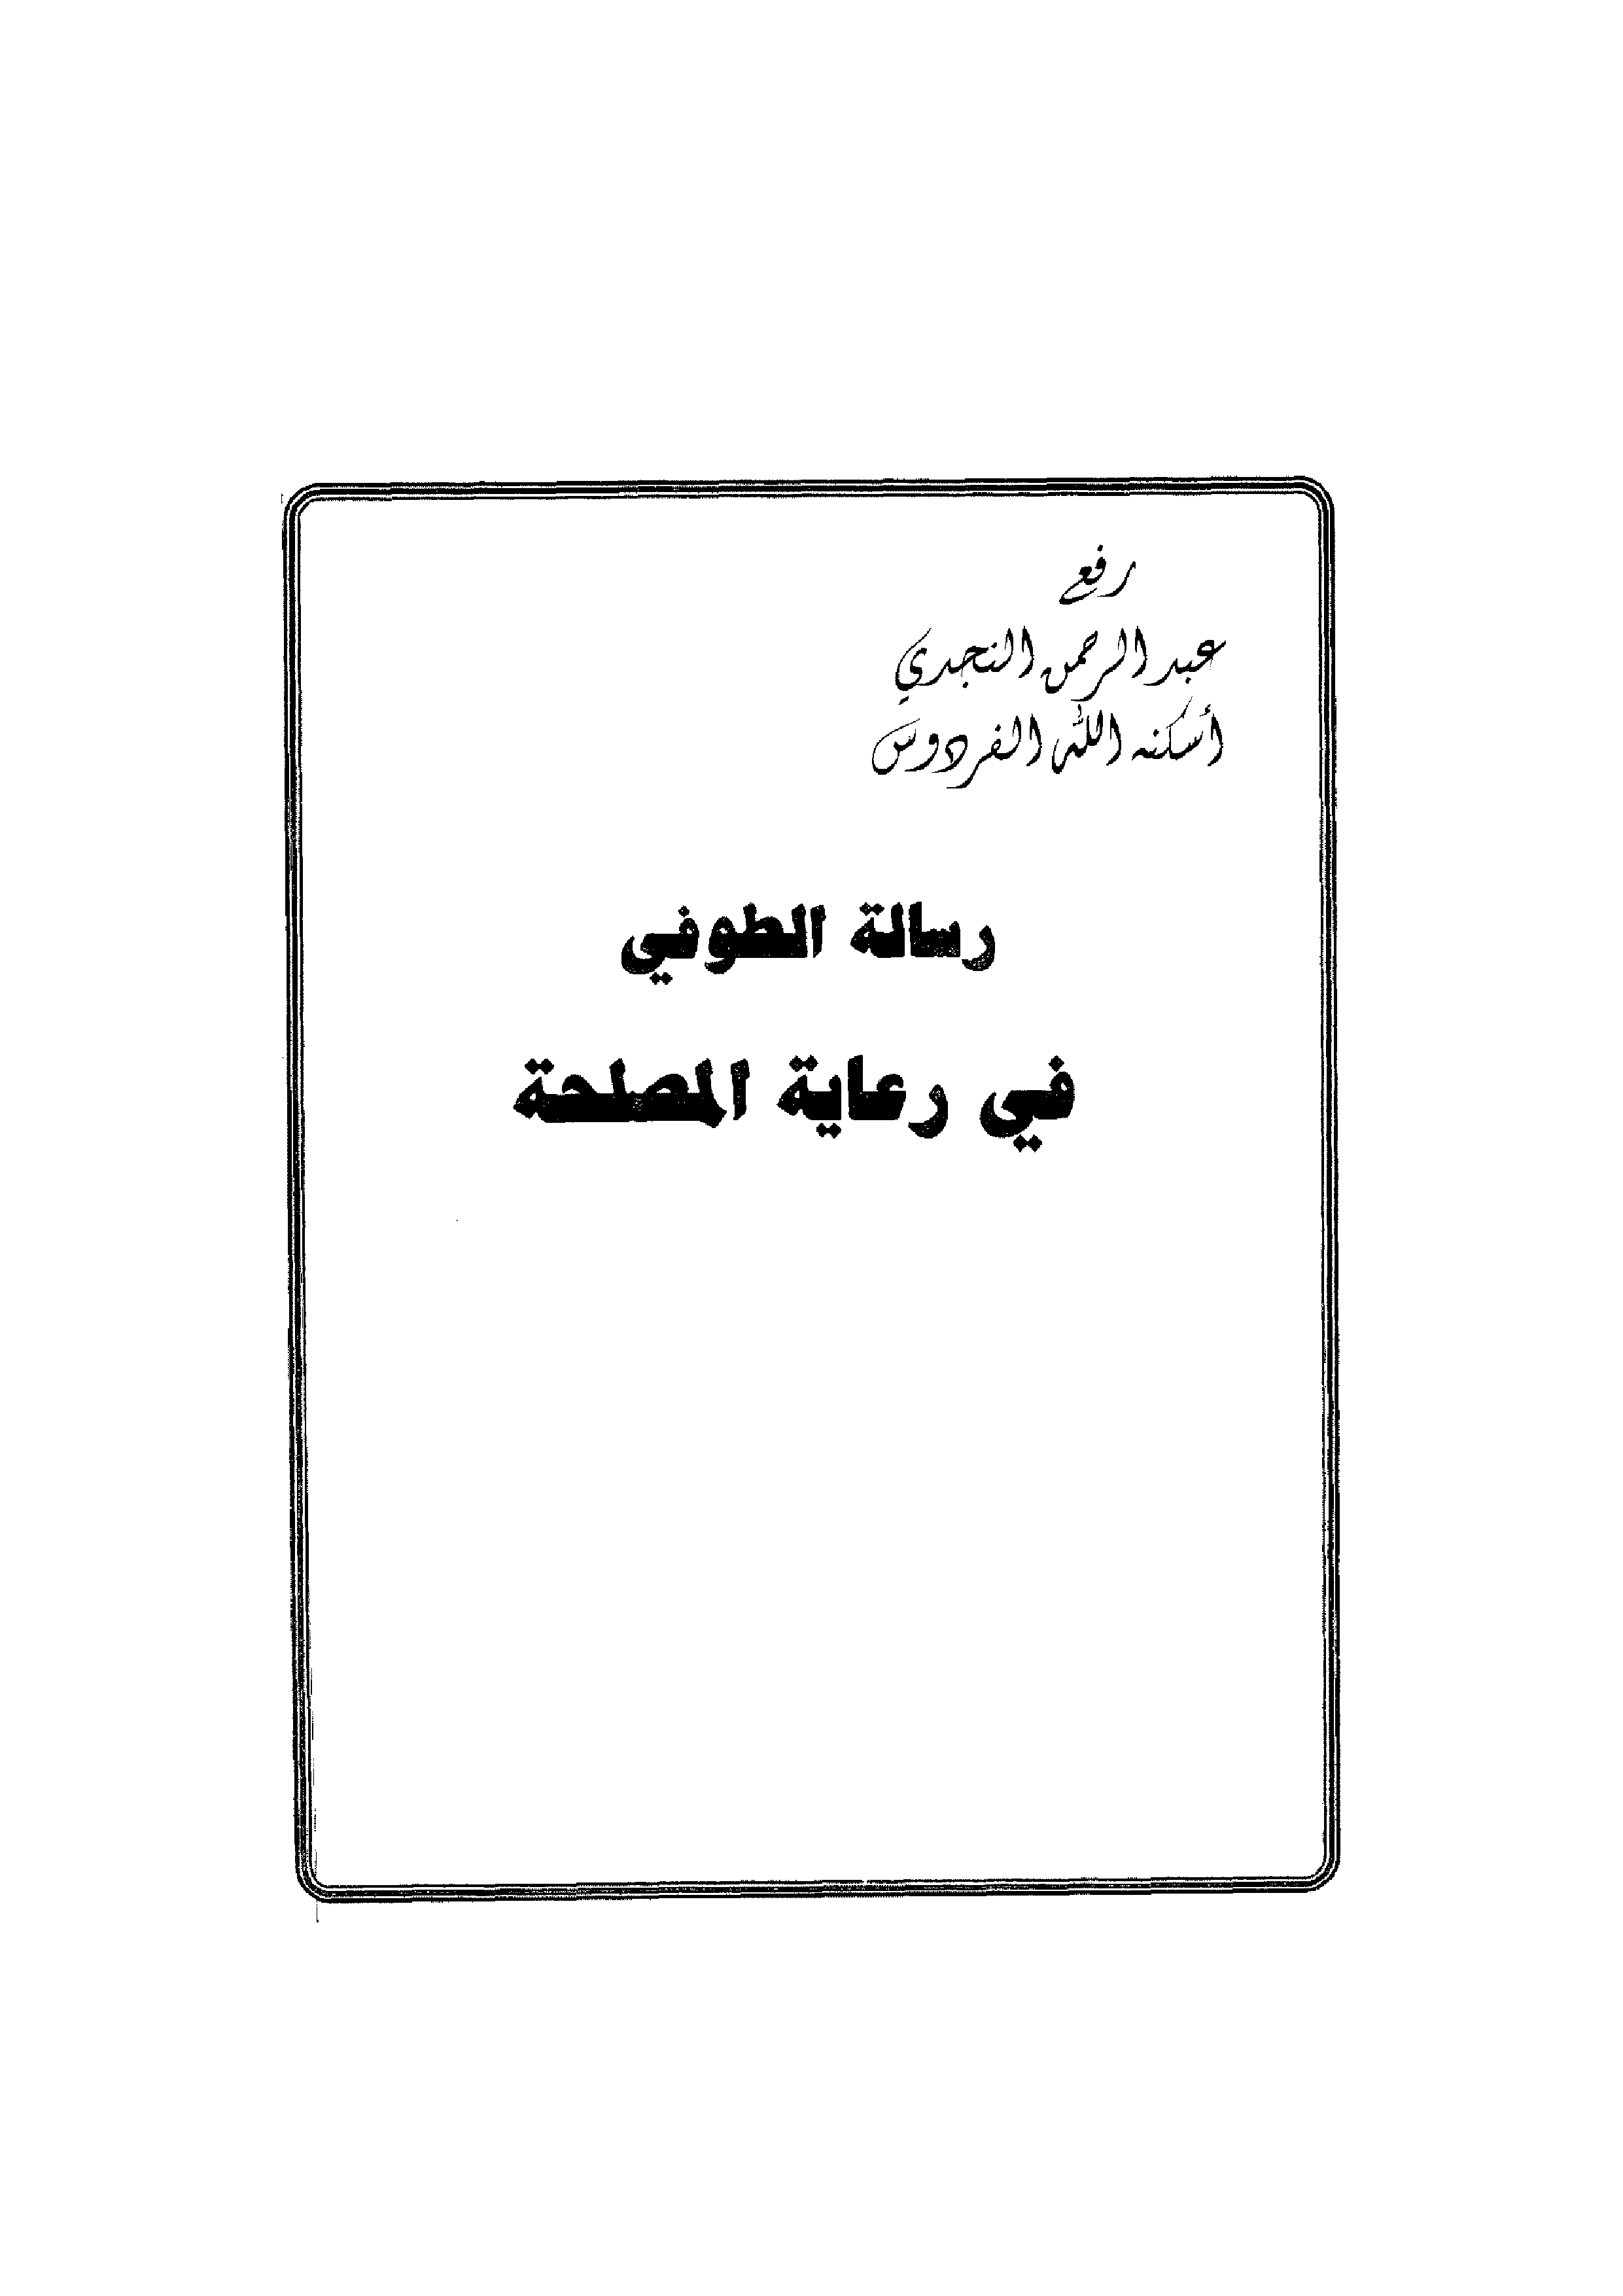 رفع
عبد الرحمن النجدي
أسكنه الله الفردوس
رسالة الطوفي
في رعاية المصلحة